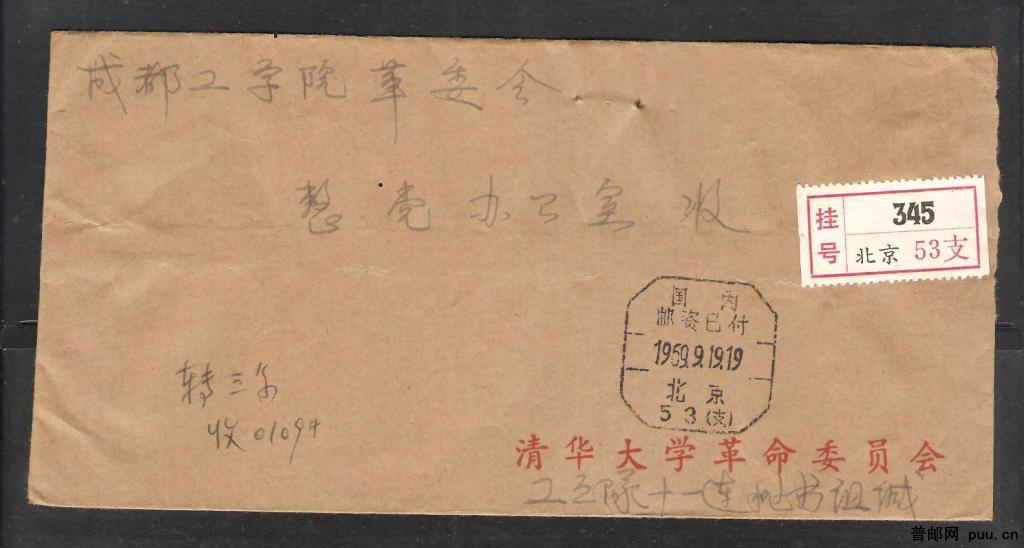 成都工学院革委会
整党办公室 收
挂号
345
北京 53支
国内
邮资已付
1969.9.19.19
北京
53(支)
转三
收01094
清华大学革命委员会
工宣队十一连秘书组缄
普邮网 puu.cn